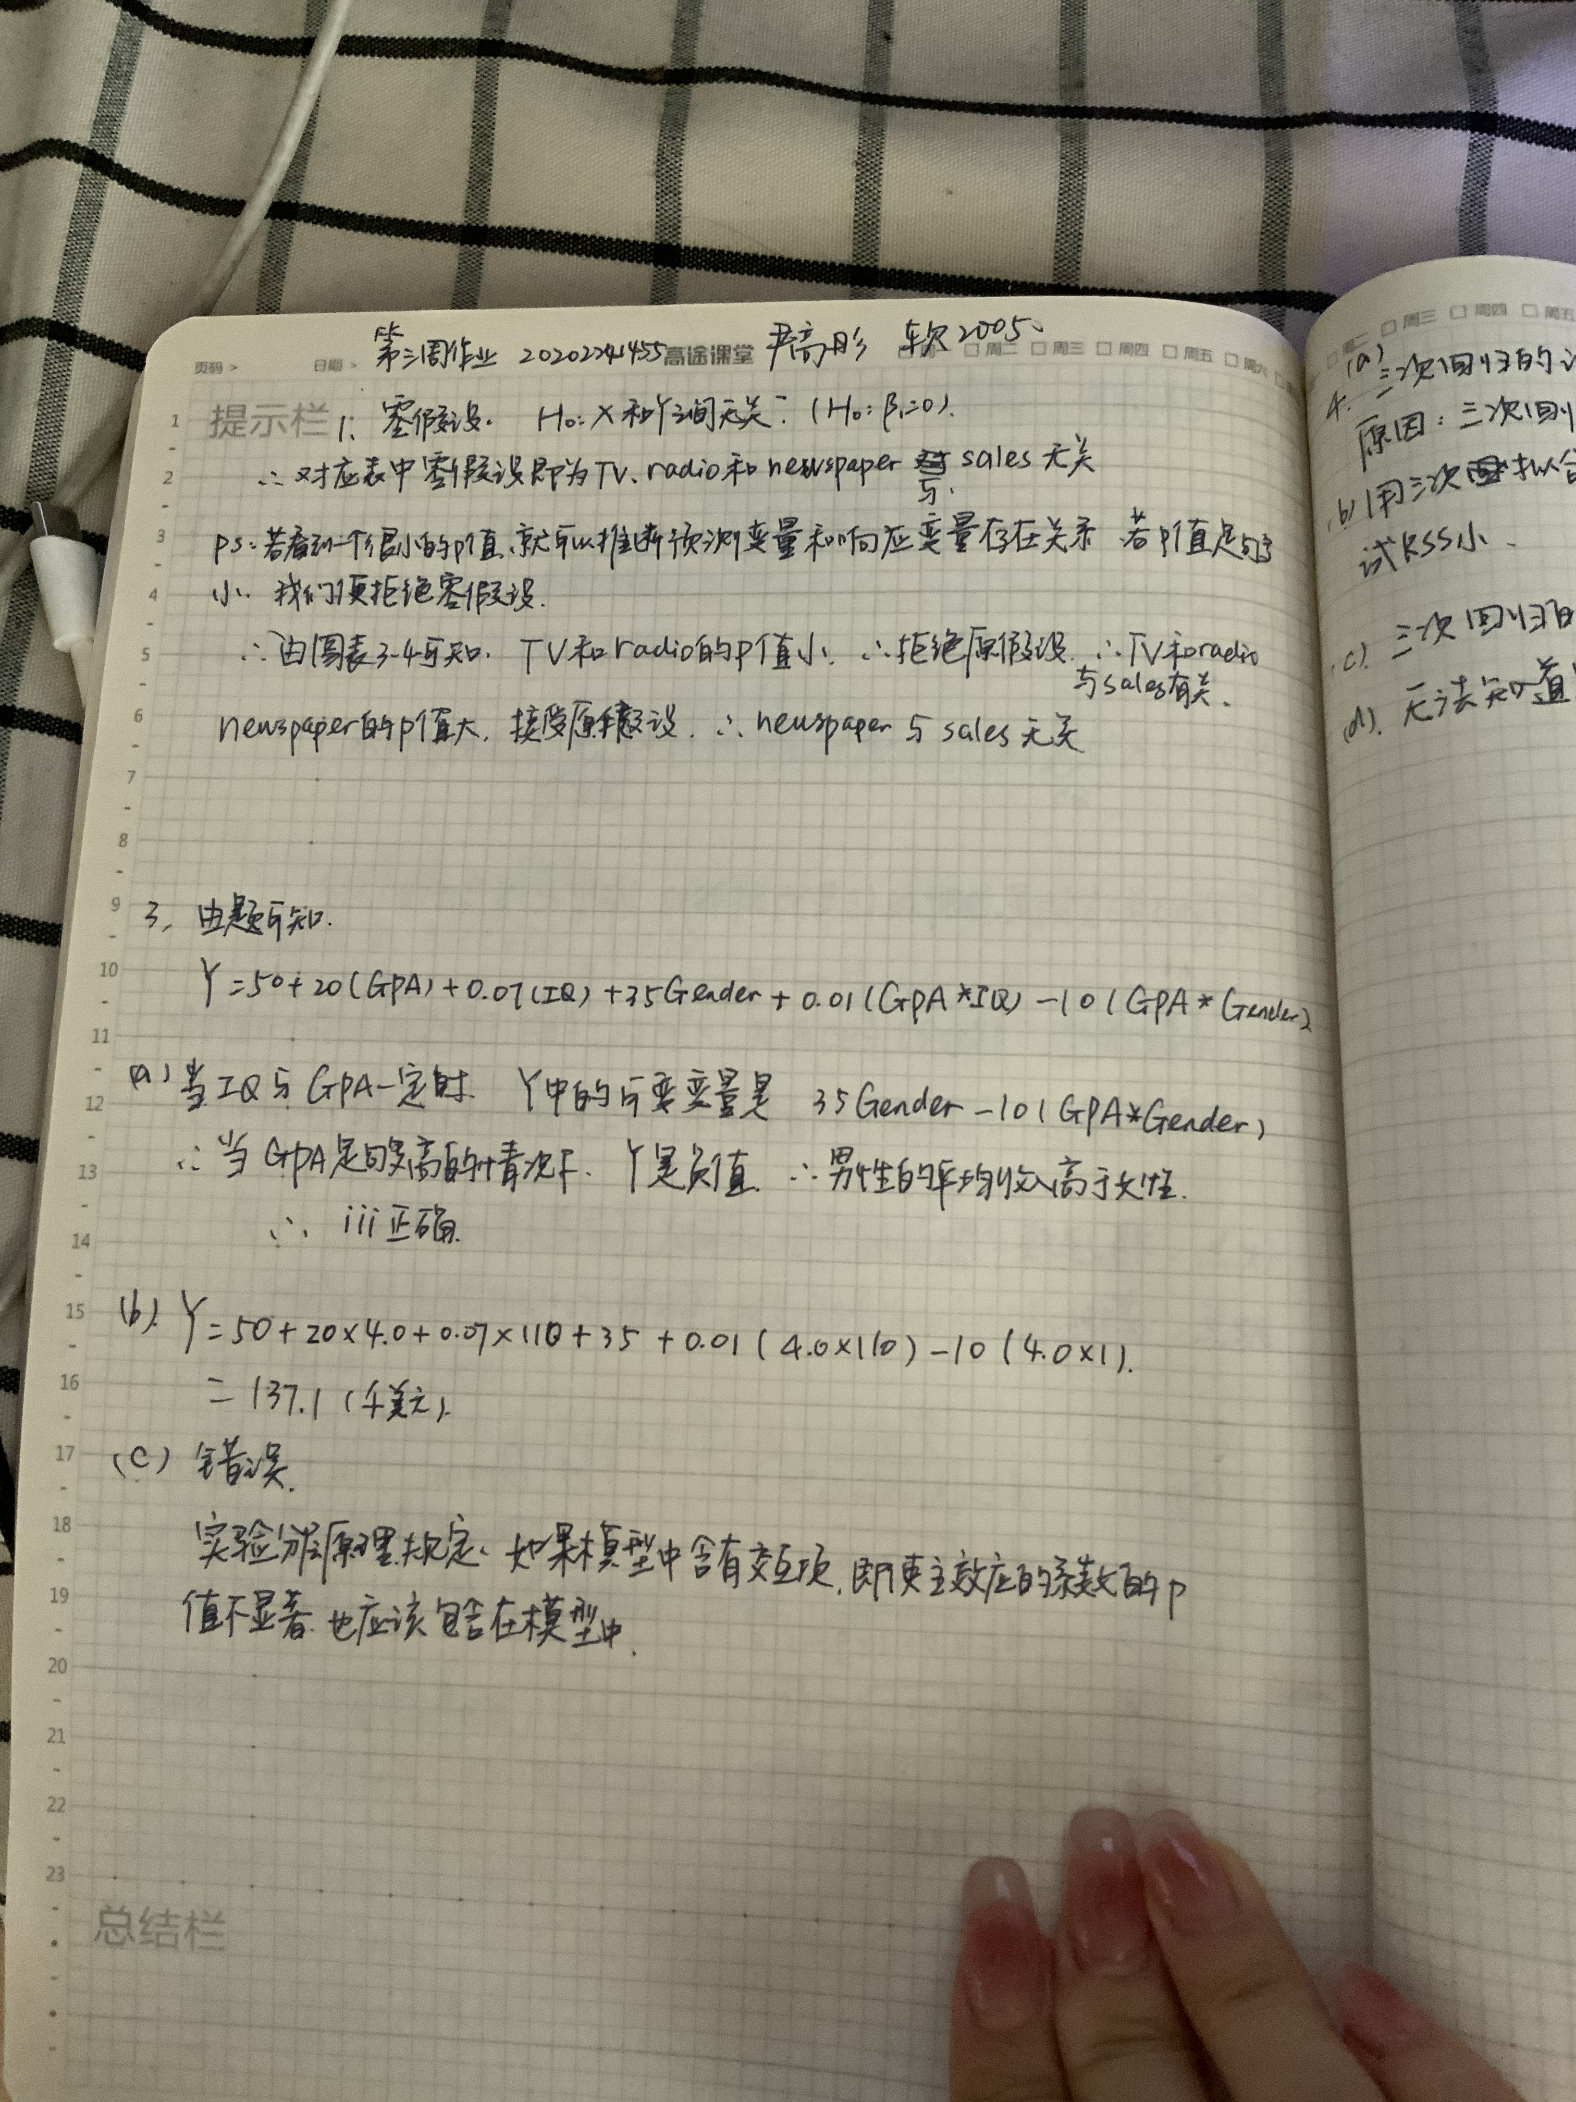 第三周作业 2020224455 高途课堂 尹高彤 软2005
页码 > 日期 > 周二 周三 周四 周五 周六
提示栏 1、零假设. H₀: X和Y之间无关. (H₀: β₁=0).
∴对应表中零假设即为TV、radio和newspaper 与 sales 无关
ps: 若看到一个很小的p值,就可以推断预测变量和响应变量存在关系 若p值足够
小. 我们便拒绝零假设.
∴由图表3-4可知. TV和radio的p值小. ∴拒绝原假设. ∴TV和radio
与sales有关.
newspaper的p值大, 接受原假设. ∴newspaper 与 sales 无关
3, 由题可知.
Y=50+20(GPA)+0.07(IQ)+35Gender+0.01(GPA*IQ)-10(GPA*Gender)
(a) 当IQ与GPA一定时. Y中的可变变量是 35Gender-10(GPA*Gender)
∴当GPA足够高的情况下. Y是负值. ∴男性的平均收入高于女性.
∴ iii正确.
(b). Y=50+20×4.0+0.07×110+35+0.01(4.0×110)-10(4.0×1).
=137.1 (千美元).
(c) 错误.
实验分层原理规定. 如果模型中含有交互项, 即使主效应的系数的p
值不显著.也应该包含在模型中.
总结栏
1
2
3
4
5
6
7
8
9
10
11
12
13
14
15
16
17
18
19
20
21
22
23
周三 周四 周五
4. (a) 三次回归的
原因: 三次回归
(b) 用三次 拟合
试RSS小.
(c). 三次回归的
(d). 无法知道